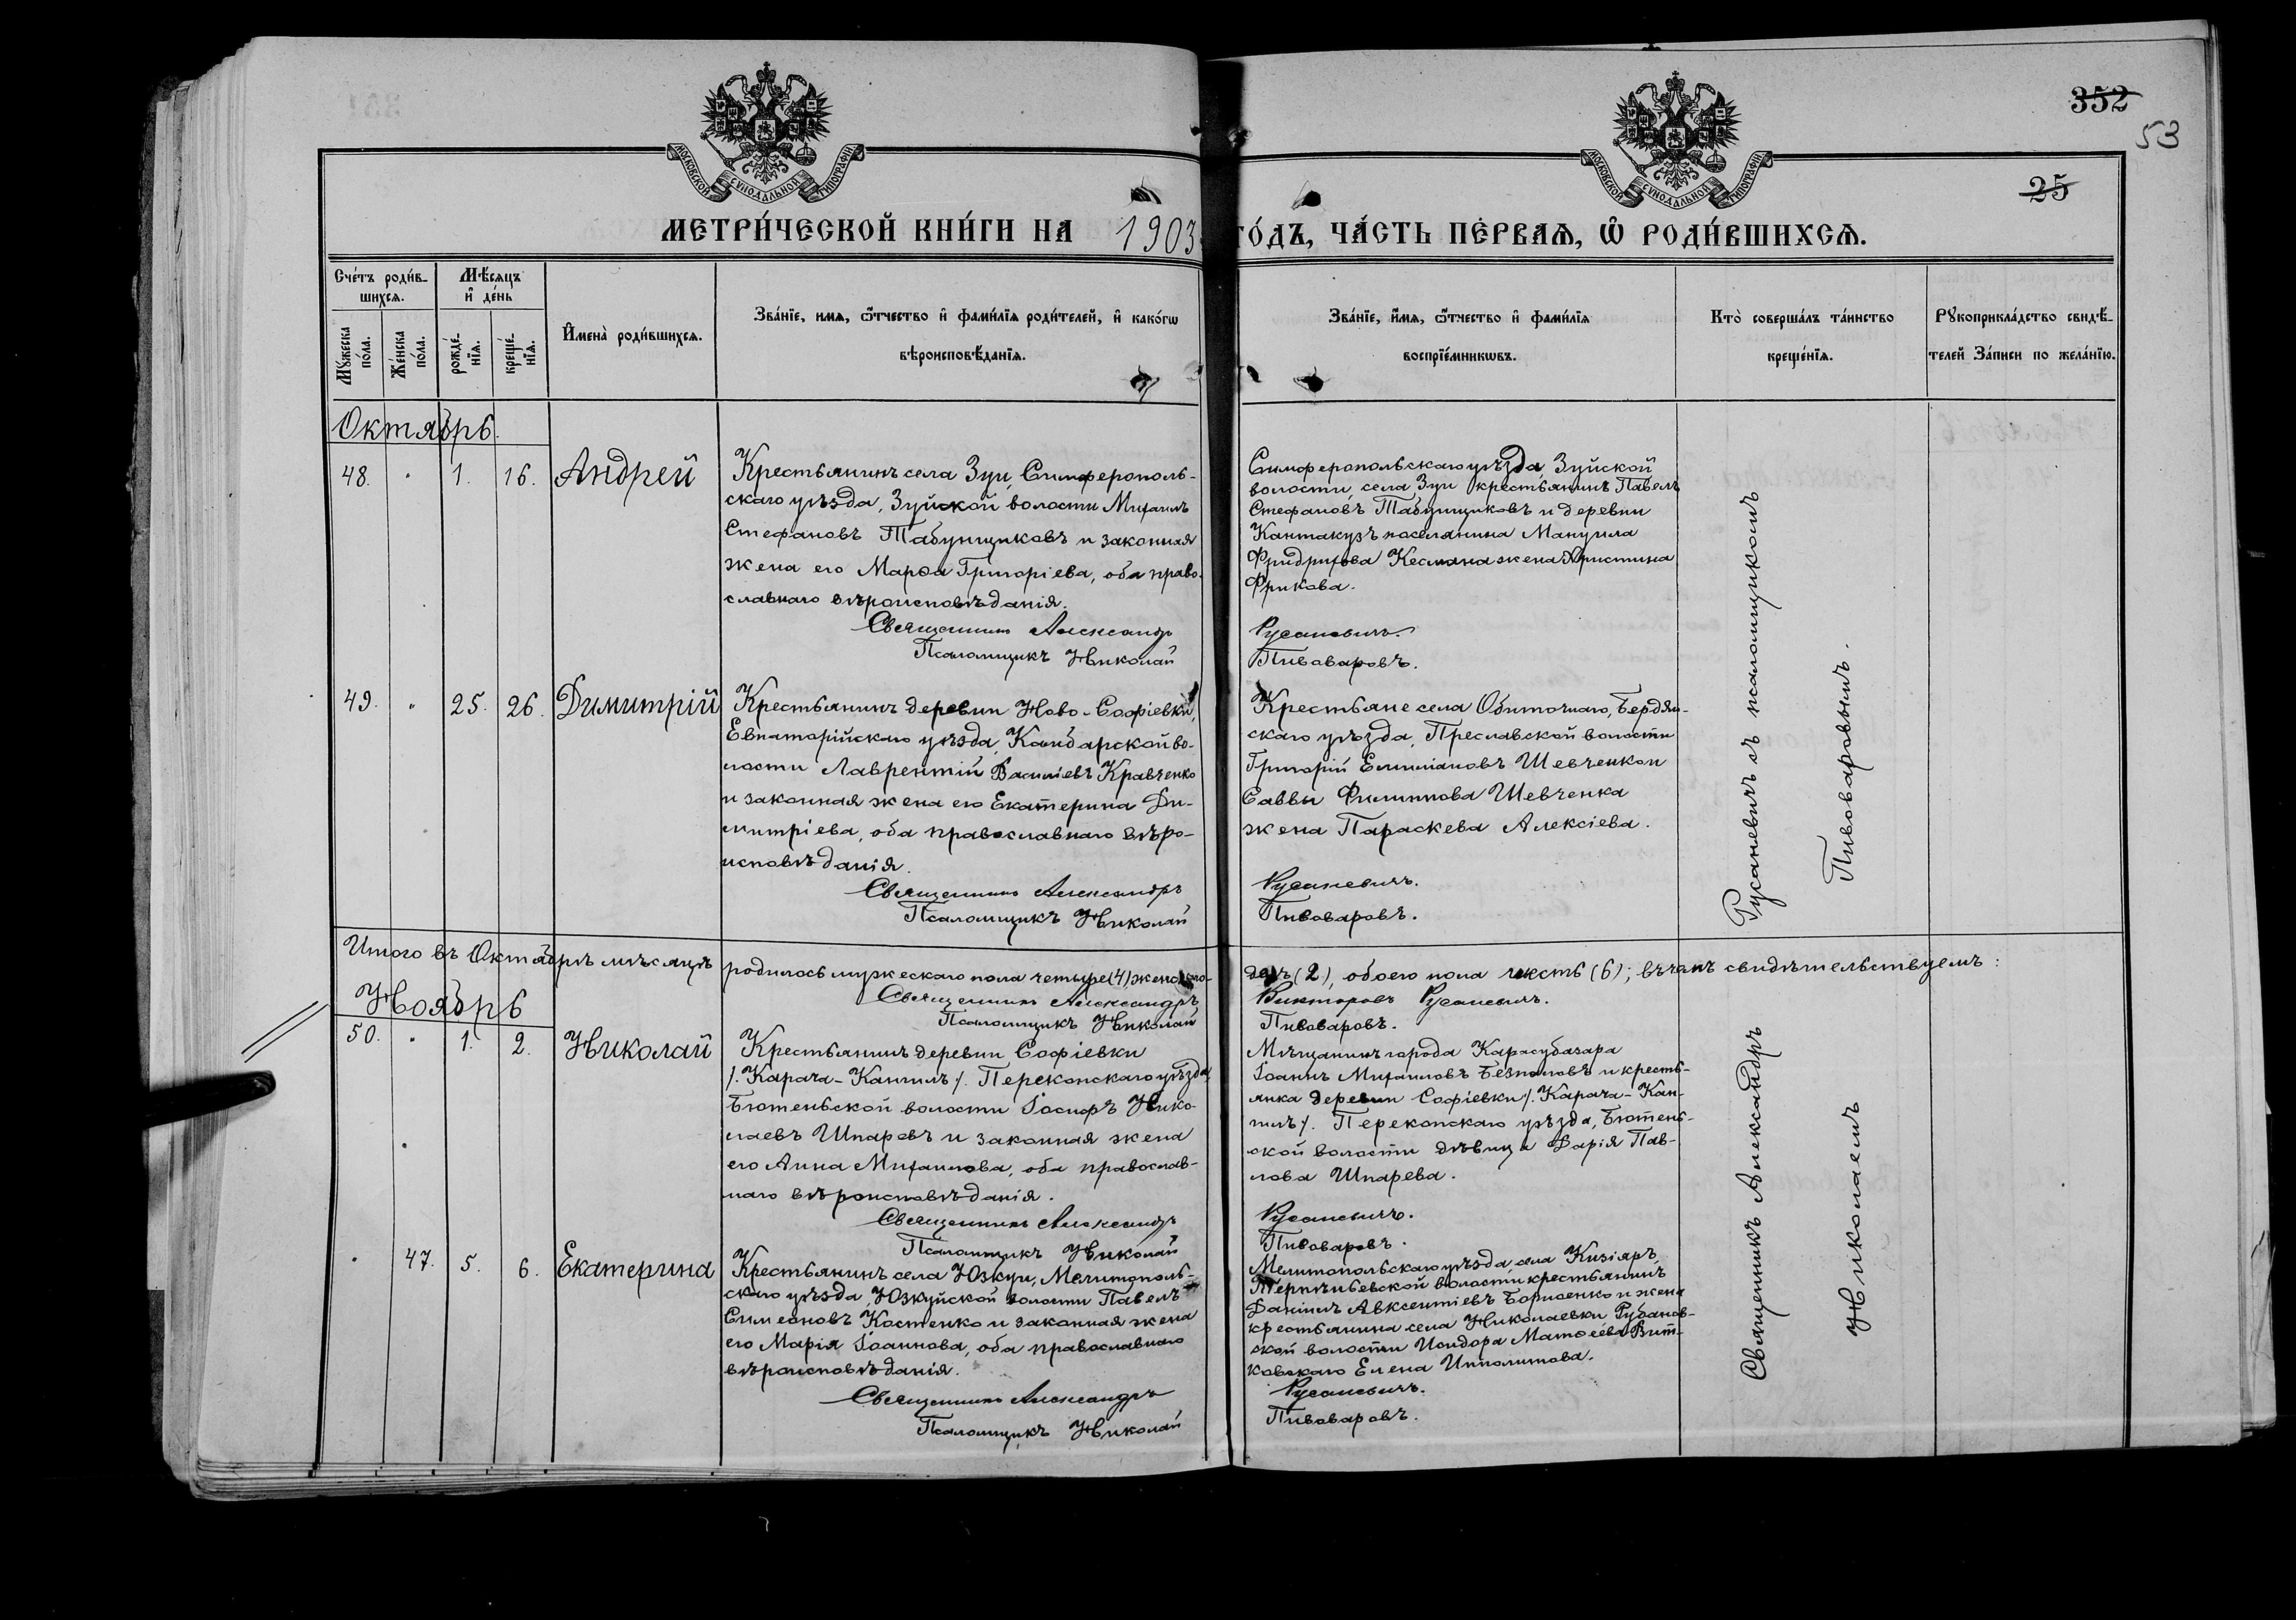 352
53
25
МОСКОВСКОЙ СѴНОДАЛЬНОЙ ТИПОГРАФІИ
МОСКОВСКОЙ СѴНОДАЛЬНОЙ ТИПОГРАФІИ
МЕТРИ́ЧЕСКОЙ КНИ́ГИ НА 1903 ГО́ДЪ, ЧА́СТЬ ПЕ́РВАѦ, Ѡ҆ РОДИ́ВШИХСѦ.
Сче́тъ роди́в-
шихсѧ.
Мѣ́сяцъ
и҆ де́нь
Мꙋжеска по́ла.
Же́нска по́ла.
рожде́-
нїѧ.
креще́-
нїѧ.
И҆мена̀ роди́вшихсѧ.
Зва́нїе, имѧ, ѻ҆́тчество и҆ фами́лїѧ роди́телей, и҆ како́гѡ
вѣроисповѣ́данїѧ.
Зва́нїе, и҆́мѧ, ѻ҆́тчество и҆ фами́лїѧ
воспрїе́мникѡвъ.
Кто̀ соверша́лъ та́инство
креще́нїѧ.
Рꙋкоприкла́дство свидѣ́-
телей За́писи по жела́нїю.
Октябрь.
48. " 1. 16. Андрей
Крестьянинъ села Зуи, Симферополь-
скаго уѣзда, Зуйской волости Михаилъ
Стефановъ Табунщиковъ и законная
жена его Марѳа Григоріева, оба право-
славнаго вѣроисповѣданія.
Священникъ Александръ
Псаломщикъ Николай
Симферопольскаго уѣзда, Зуйской
волости, села Зуи крестьянинъ Павелъ
Стефановъ Табунщиковъ и деревни
Кантакузъ поселянина Мануила
Фридрихова Кесмана жена Христина
Фрикова.
Русаневичъ.
Пивоваровъ.
49. " 25. 26. Димитрій
Крестьянинъ деревни Ново-Софіевки,
Евпаторійскаго уѣзда, Камбарской во-
лости Лаврентій Василіевъ Кравченко
и законная жена его Екатерина Ди-
митріева, оба православнаго вѣро-
исповѣданія.
Священникъ Александръ
Псаломщикъ Николай
Крестьяне села Обиточнаго, Бердян-
скаго уѣзда, Преславской волости
Григорій Емиліановъ Шевченко и
Саввы Филиппова Шевченка
жена Параскева Алексіева.
Русаневичъ.
Пивоваровъ.
Итого въ Октябрѣ мѣсяцѣ родилось мужескаго пола четыре (4) женскаго
двѣ (2), обоего пола шесть (6); въ чемъ свидѣтельствуемъ:
Священникъ Александръ Викторовъ Русаневичъ.
Псаломщикъ Николай Пивоваровъ.
Ноябрь
50. " 1. 2. Николай
Крестьянинъ деревни Софіевки
/. Карача-Кангилъ /. Перекопскаго уѣзда,
Бютеньской волости Іосифъ Нико-
лаевъ Шпаревъ и законная жена
его Анна Михаилова, оба православ-
наго вѣроисповѣданія.
Священникъ Александръ
Псаломщикъ Николай
Мѣщанинъ города Карасубазара
Іоаннъ Михаиловъ Безпаловъ и кресть-
янка деревни Софіевки /. Карача-Кан-
гилъ /. Перекопскаго уѣзда, Бютень-
ской волости дѣвица Дарія Пав-
лова Шпарева.
Русаневичъ.
Пивоваровъ.
" 47. 5. 6. Екатерина
Крестьянинъ села Юзкуи, Мелитополь-
скаго уѣзда, Юзкуйской волости Павелъ
Симеоновъ Костенко и законная жена
его Марія Іоаннова, оба православнаго
вѣроисповѣданія.
Священникъ Александръ
Псаломщикъ Николай
Мелитопольскаго уѣзда, села Кизіяръ,
Терпѣньевской волости крестьянинъ
Даніилъ Авксентіевъ Борисенко и жена
крестьянина села Николаевки Рубанов-
ской волости Исидора Матѳеева Вит-
ковскаго Елена Ипполитова.
Русаневичъ.
Пивоваровъ.
Священникъ Александръ Русаневичъ съ псаломщикомъ
Николаемъ Пивоваровымъ.